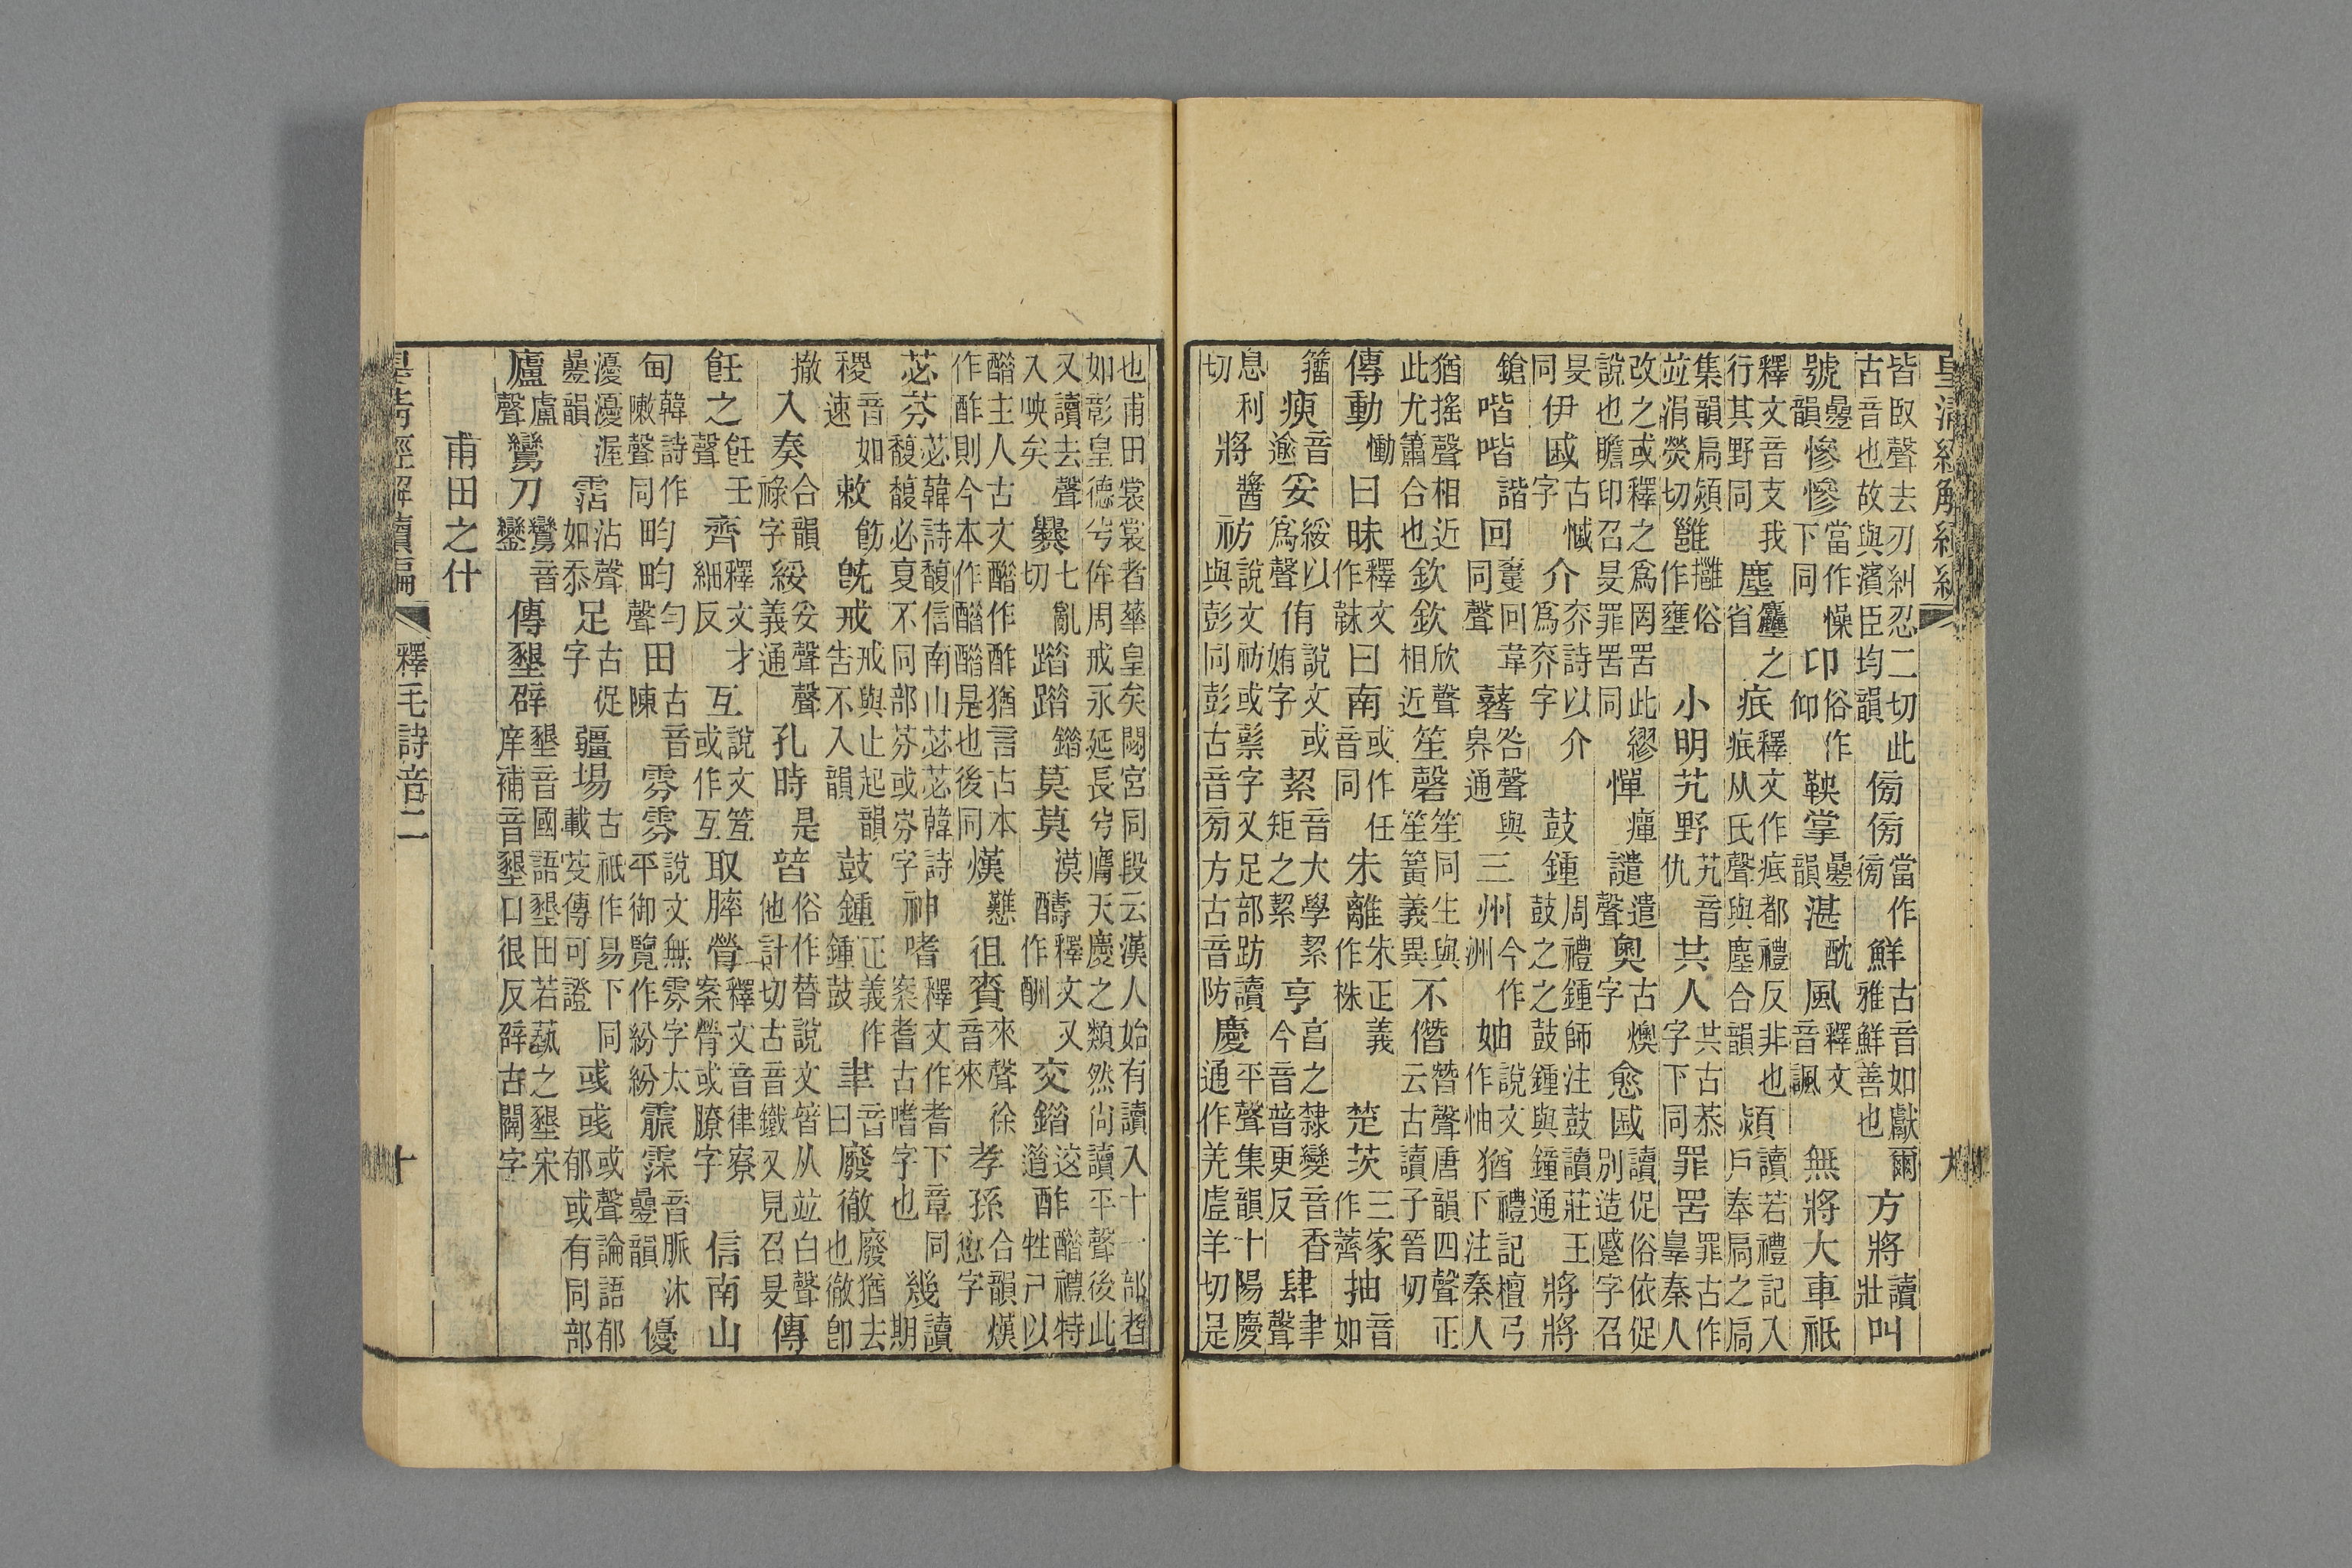 皇清經解續編 九
皆臤聲去刃糾忍二切此古音也故與濱臣均韻傍傍當作徬鮮古音如獻爾雅鮮善也方將讀壯叫
號疊韻慘慘當作懆下同卬俗作仰鞅掌疊韻湛酖風釋文音諷無將大車祇
釋文音支我行其野同塵麤之省疧釋文作疷都禮反非也疧从氏聲與塵合韻熲讀若禮記入戶奉扃之扃
集韻扃熲竝涓熒切雝俗作壅小明艽野艽音仇共人共古恭字下同罪罟罪古作辠秦人
改之或釋之爲罔罟此說也瞻卬召旻罪罟同繆憚癉譴遣聲奧古燠字愈戚讀促俗依促別造蹙字召
旻同伊戚古慽字介夰詩以介爲夰字鼓鍾周禮鍾師注鼓讀莊王鼓之之鼓鍾與鐘通將將
鎗喈喈諧回褱回韋同聲鼛咎聲與皋通三州今作洲妯說文作怞猶禮記檀弓下注秦人
猶搖聲相近此尤簫合也欽欽欣聲相近笙磬笙同生與笙簧義異不僭朁聲唐韻四聲正云古讀子晉切
傳動慟曰昧釋文作韎曰南或作任音同朱離朱正義作株楚茨三家作薺抽音如
籀庾音逾妥綏以爲聲侑說文或姷字絜音大學絜矩之絜亨亯之隸變音香今音普更反肆聿聲
息利切將醬祊說文祊或䰎字又足部趽讀與彭同彭古音旁方古音防慶平聲集韻十陽慶通作羌虛羊切是
也甫田裳裳者華皇矣閟宮同段云漢人始有讀入十一部者如彰皇德兮侔周成永延長兮膺天慶之類然尚讀平聲後此
又讀去聲入映矣爨七亂切踖踖錯莫莫漠醻釋文又作酬交錯酢醋禮特牲尸以
醋主人古文醋作酢猶言古本作酢則今本作醋醋是也後同熯戁徂賚來聲徐音來孝孫合韻愻字熯
苾芬苾韓詩馥信南山苾苾韓詩馥馥必复不同部芬或芬字神嗜釋文作耆下章同案耆古嗜字也幾讀期
稷音如速敕飭旣戒戒與止起韻告不入韻鼓鍾正義作鍾鼓聿音曰廢徹廢猶去也徹卽
撤入奏合韻祿字綏妥聲聲義通孔時是朁俗作替說文朁从竝白聲他計切古音鐵又見召旻傳
飪之飪壬聲齊釋文才細反互說文笠或作互取膟膋釋文音律寮案膋或膫字信南山
甸韓詩作敶聲同畇畇勻聲田古音陳雰雰說文無雰字太平御覽作紛紛霢霂音脈沐疊韻優
瀀瀀渥疊韻霑沾聲如忝足古促字疆埸古祗作易下同載芟傳可證彧彧或聲論語郁郁或有同部
廬盧聲鸞刀鸞音鑾傳墾辟墾音國語墾田若蓺之墾宋庠補音墾口很反辟古闢字
甫田之什
皇清經解續編 釋毛詩音二 十